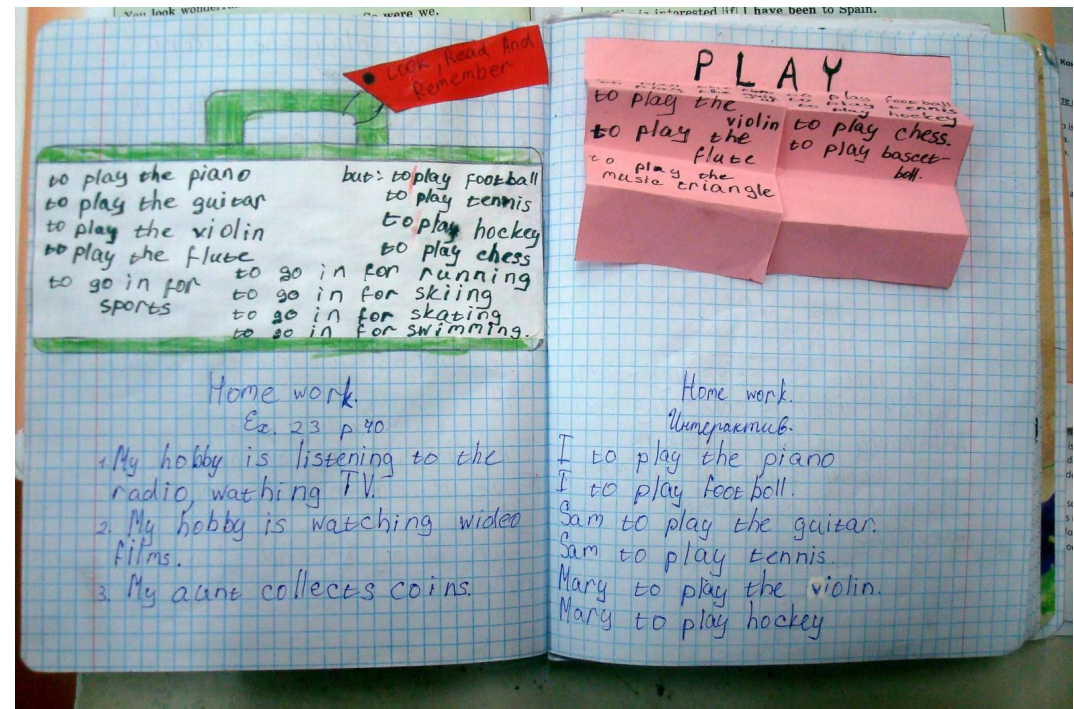 You look
So were we.
is interested
if I have been to Spain.
Look, Read And
Remember
to play the piano
to play the guitar
to play the violin
to play the flute
to go in for
sports
but: to play football
to play tennis
to play hockey
to play chess
to go in for running
to go in for skiing
to go in for skating
to go in for swimming.
Home work.
Ex. 23 p 40.
1. My hobby is listening to the
radio, wathing TV.
2. My hobby is watching wideo
films.
3. My aunt collects coins.
PLAY
to play football
to play tennis
to play hockey
to play the
violin
to play the
flute
to play the
music triangle
to play chess.
to play bascet-
boll.
Home work.
Интерактив.
I to play the piano
I to play footboll.
Sam to play the guitar.
Sam to play tennis.
Mary to play the violin.
Mary to play hockey